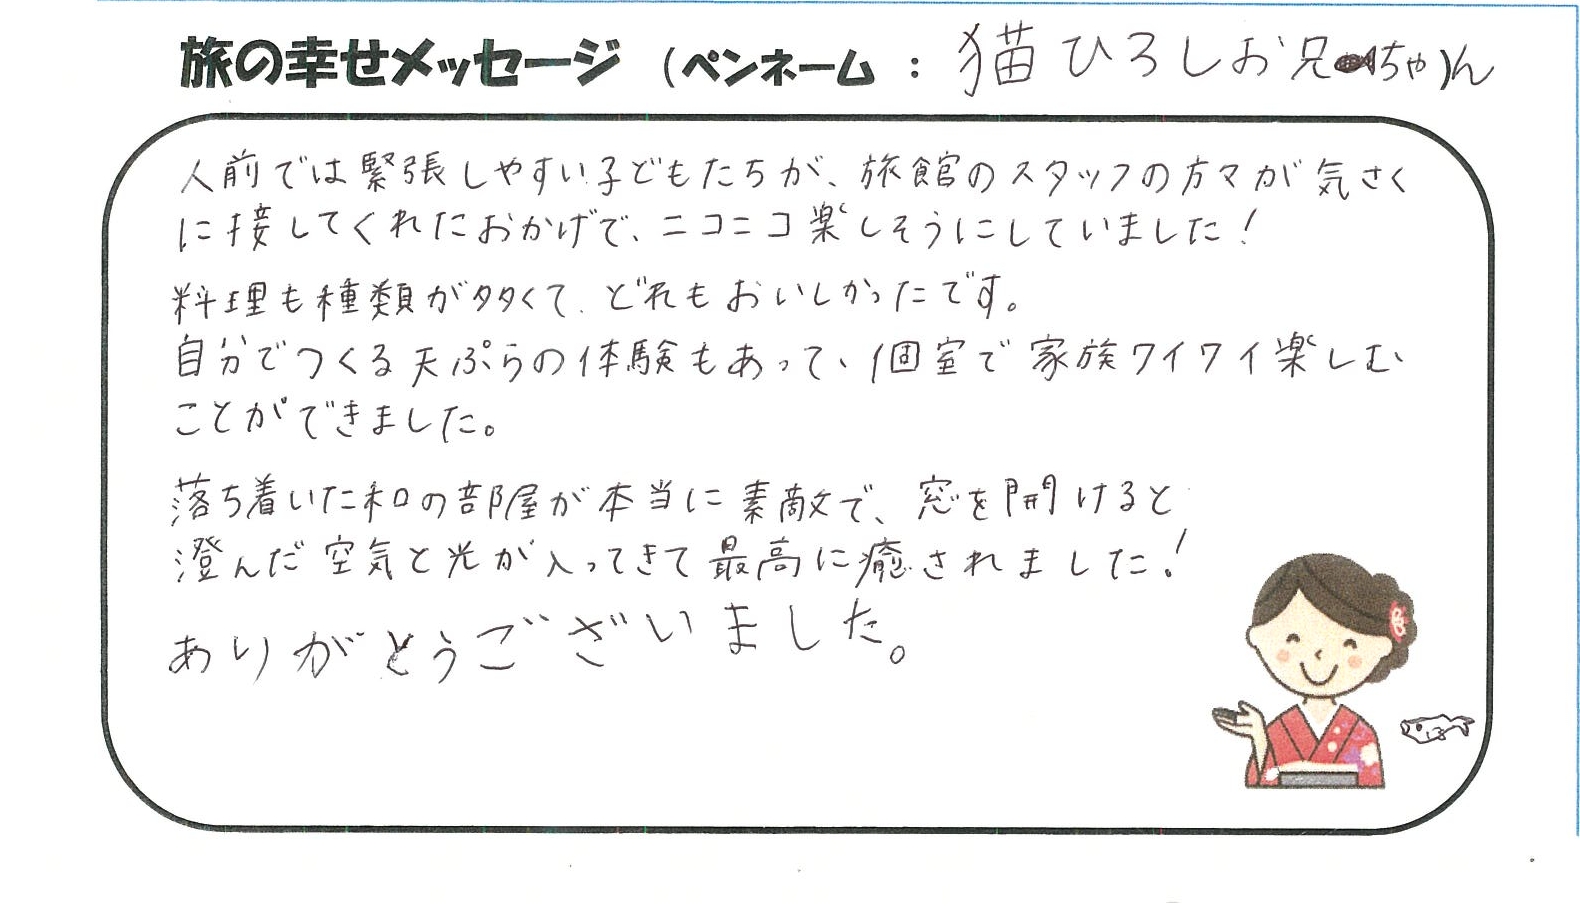 旅の幸せメッセージ (ペンネーム : 猫ひろしお兄ちゃん)
人前では緊張しやすい子どもたちが、旅館のスタッフの方々が気さく
に接してくれたおかげで、ニコニコ楽しそうにしていました!
料理も種類が多くて、どれもおいしかったです。
自分でつくる天ぷらの体験もあって、個室で家族ワイワイ楽しむ
ことができました。
落ち着いた和の部屋が本当に素敵で、窓を開けると
澄んだ空気と光が入ってきて最高に癒されました!
ありがとうございました。